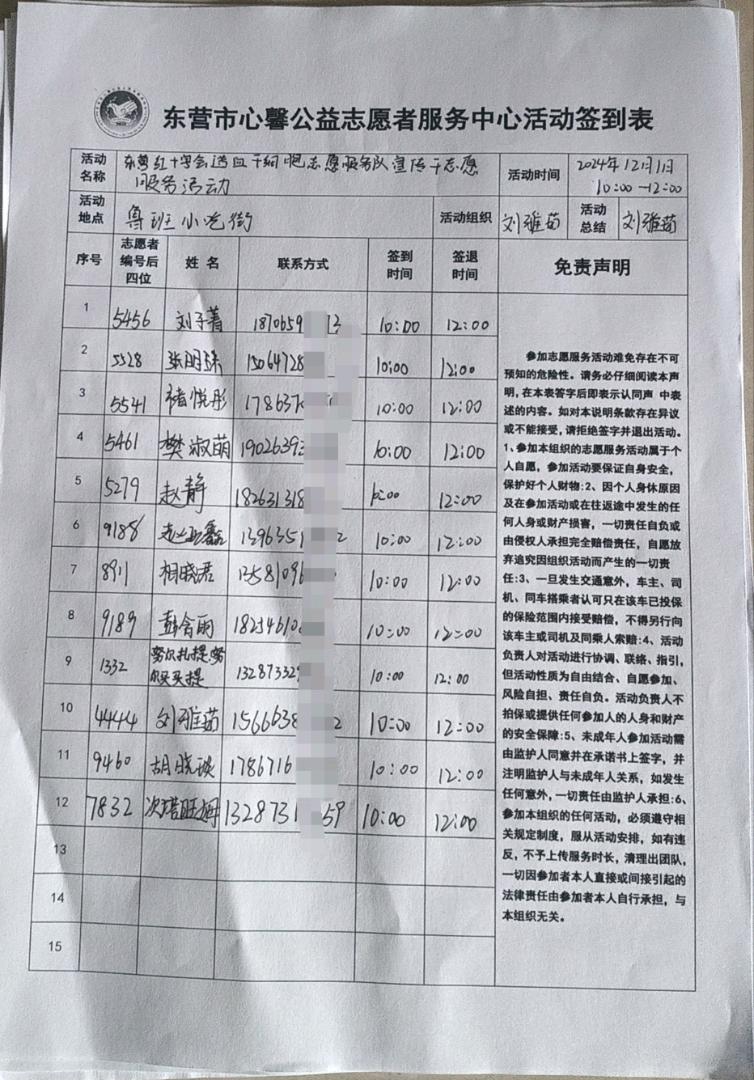 东营市心馨公益志愿者服务中心活动签到表
活动名称 东营红十字会造血干细胞志愿服务队宣传干志愿
服务活动
活动时间 2024年12月1日
10:00-12:00
活动地点 鲁班小吃街 活动组织 刘雅茹 活动总结 刘雅茹
序号 志愿者编号后四位 姓名 联系方式 签到时间 签退时间 免责声明
1 5456 刘子菁 1870659 12 10:00 12:00
2 5528 张明珠 15064728 10:00 12:00
3 5541 褚悦彤 178637 10:00 12:00
4 5461 樊淑萌 19026393 10:00 12:00
5 5279 赵静 182631318 10:00 12:00
6 9188 1396351 2 10:00 12:00
7 8911 相晓珺 13581096 10:00 12:00
8 9189 韩含雨 18254610 10:00 12:00
9 1332 努尔扎提·努
尔买买提 132873329 10:00 12:00
10 4444 刘雅茹 1566638 2 10:00 12:00
11 9460 胡晓谈 1786716 10:00 12:00
12 7832 次塔旺姆 1328731 59 10:00 12:00
13
14
15
参加志愿服务活动难免存在不可
预知的危险性。请务必仔细阅读本声
明,在本表签字后即表示认同声 中表
述的内容。如对本说明条款存在异议
或不能接受,请拒绝签字并退出活动。
1、参加本组织的志愿服务活动属于个
人自愿,参加活动要保证自身安全,
保护好个人财物:2、因个人身休原因
及在参加活动或在往返途中发生的任
何人身或财产损害,一切责任自负或
由侵权人承担完全赔偿责任,自愿放
弃追究因组织活动而产生的一切责
任:3、一旦发生交通意外,车主、司
机、同车搭乘者认可只在该车已投保
的保险范围内接受赔偿,不得另行向
该车主或司机及同乘人索赔:4、活动
负责人对活动进行协调、联络、指引,
但活动性质为自由结合、自愿参加、
风险自担、责任自负。活动负责人不
担保或提供任何参加人的人身和财产
的安全保障:5、未成年人参加活动需
由监护人同意并在承诺书上签字,并
注明监护人与未成年人关系,如发生
任何意外,一切责任由监护人承担:6、
参加本组织的任何活动,必须遵守相
关规定制度,服从活动安排,如有违
反,不予上传服务时长,清理出团队,
一切因参加者本人直接或间接引起的
法律责任由参加者本人自行承担,与
本组织无关。